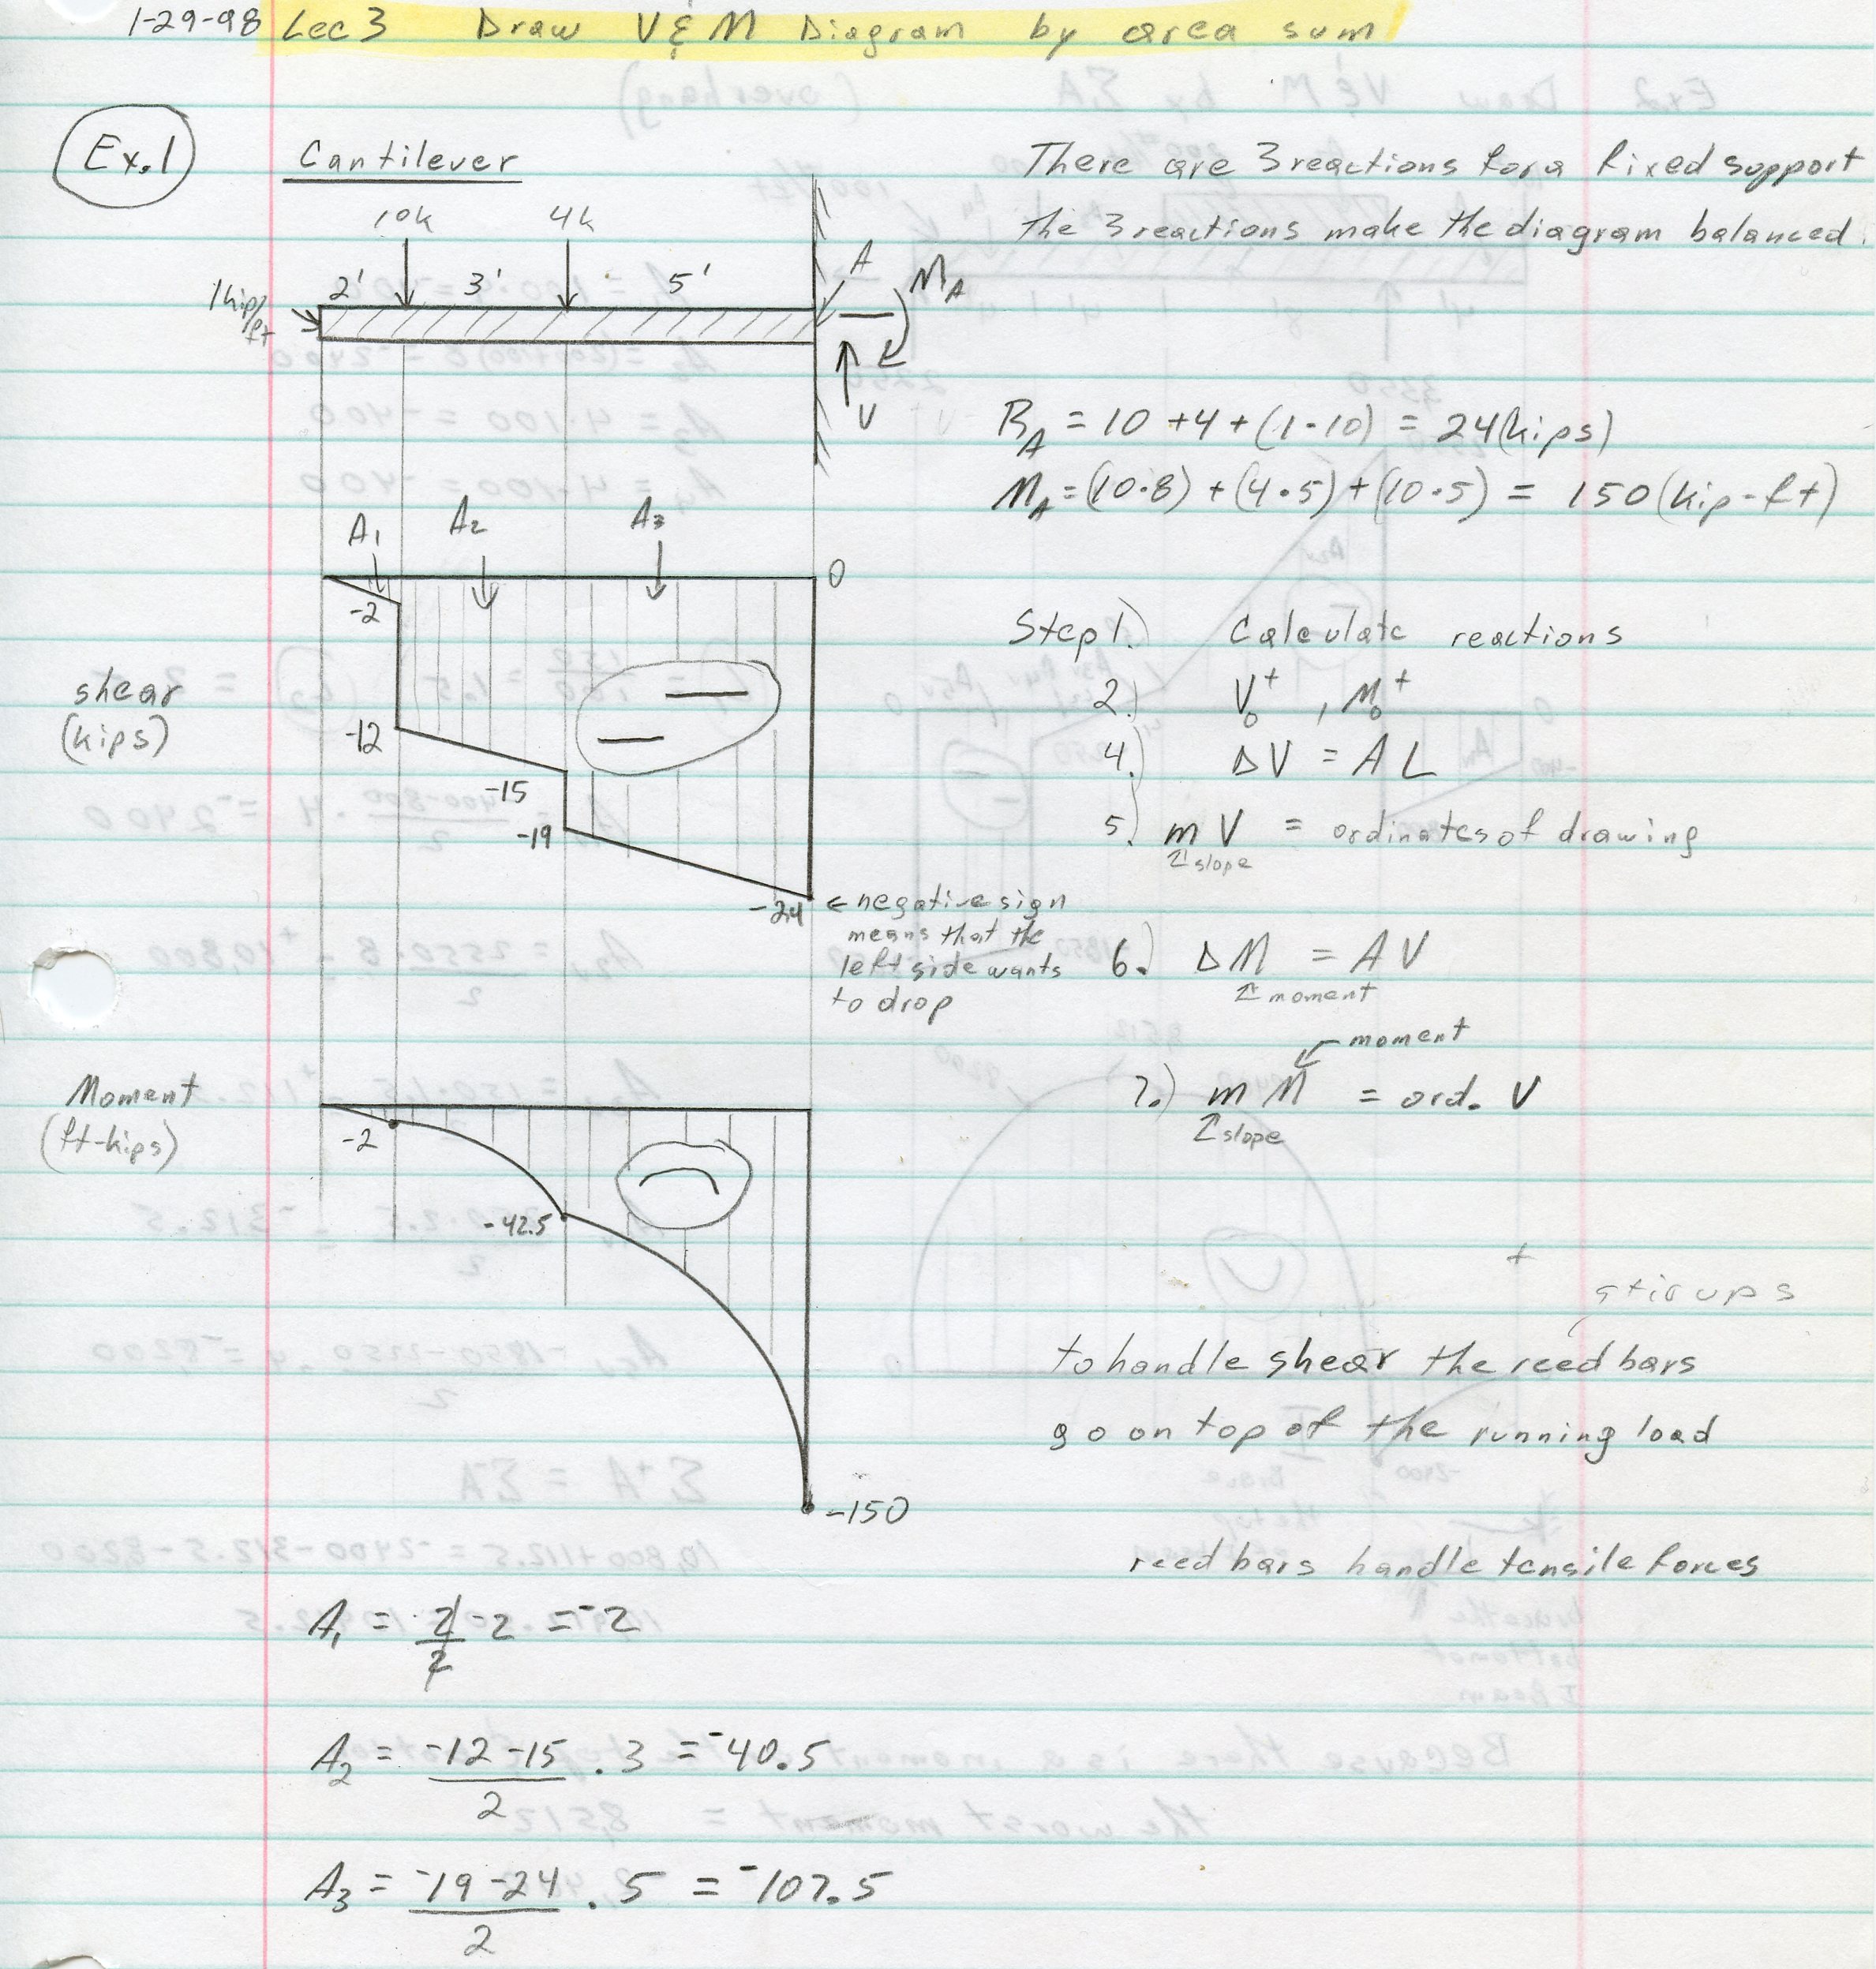 1-29-98 Lec 3 Draw V & M Diagram by area sum
Ex.1
Cantilever
There are 3 reactions for a fixed support
the 3 reactions make the diagram balanced.
10k 4k
2' 3' 5'
1 kip/ft
A
M_A
V
R_A = 10 + 4 + (1·10) = 24 (kips)
M_A = (10·8) + (4·5) + (10·5) = 150 (kip-ft)
A1 A2 A3
0
-2
shear
(kips)
-12
-15
-19
-24
← negative sign
means that the
left side wants
to drop
Step 1.) Calculate reactions
2.) V_0^+ , M_0^+
4.) ΔV = A L
5.) m V = ordinates of drawing
↑ slope
6.) ΔM = A V
↑ moment
moment
7.) m M = ord. V
↑ slope
Moment
(ft-kips)
-2
-42.5
-150
+
stirups
to handle shear the reed bars
go on top of the running load
reed bars handle tensile forces
A1 = 2/2 -2 = -2
A2 = -12 -15/2 · 3 = -40.5
A3 = -19 -24/2 · 5 = -107.5